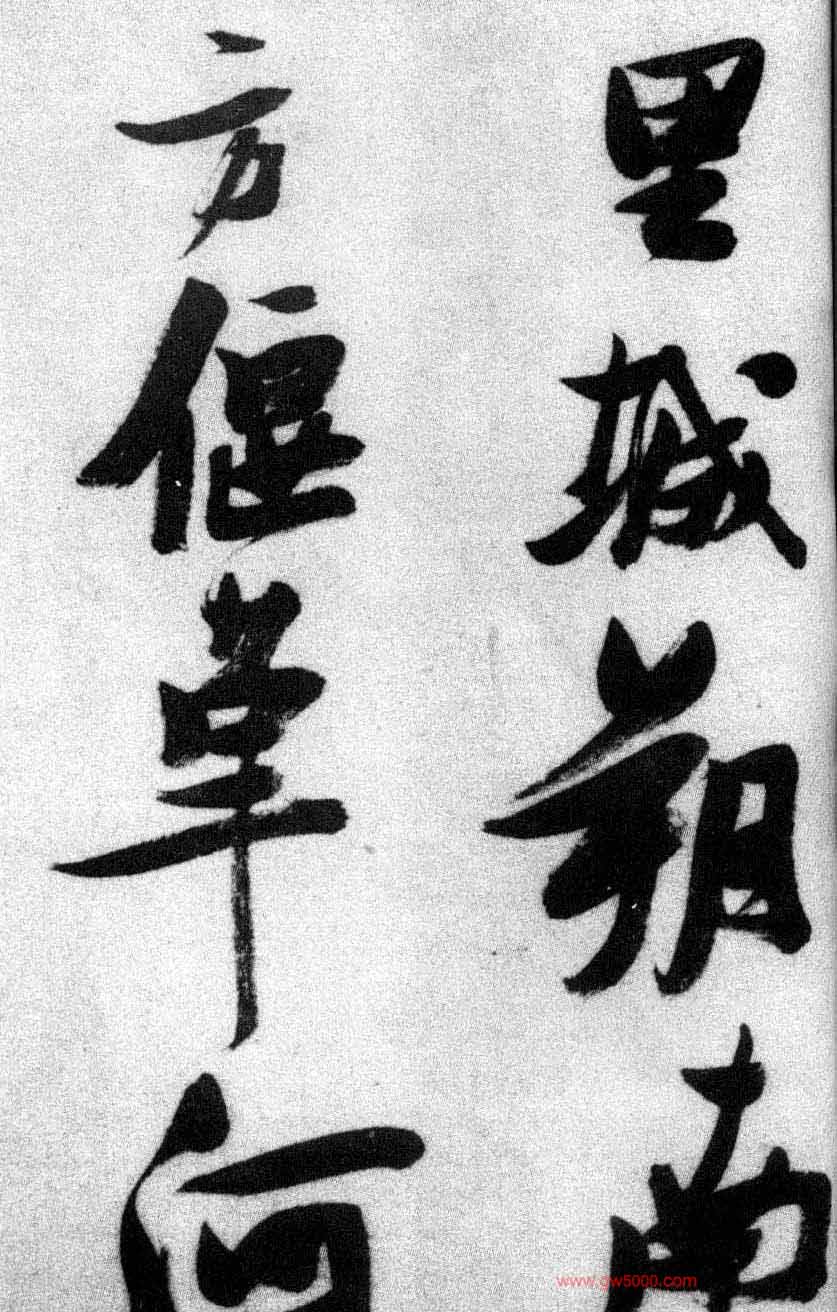 里城朔南
方偃草何
www.gw5000.com